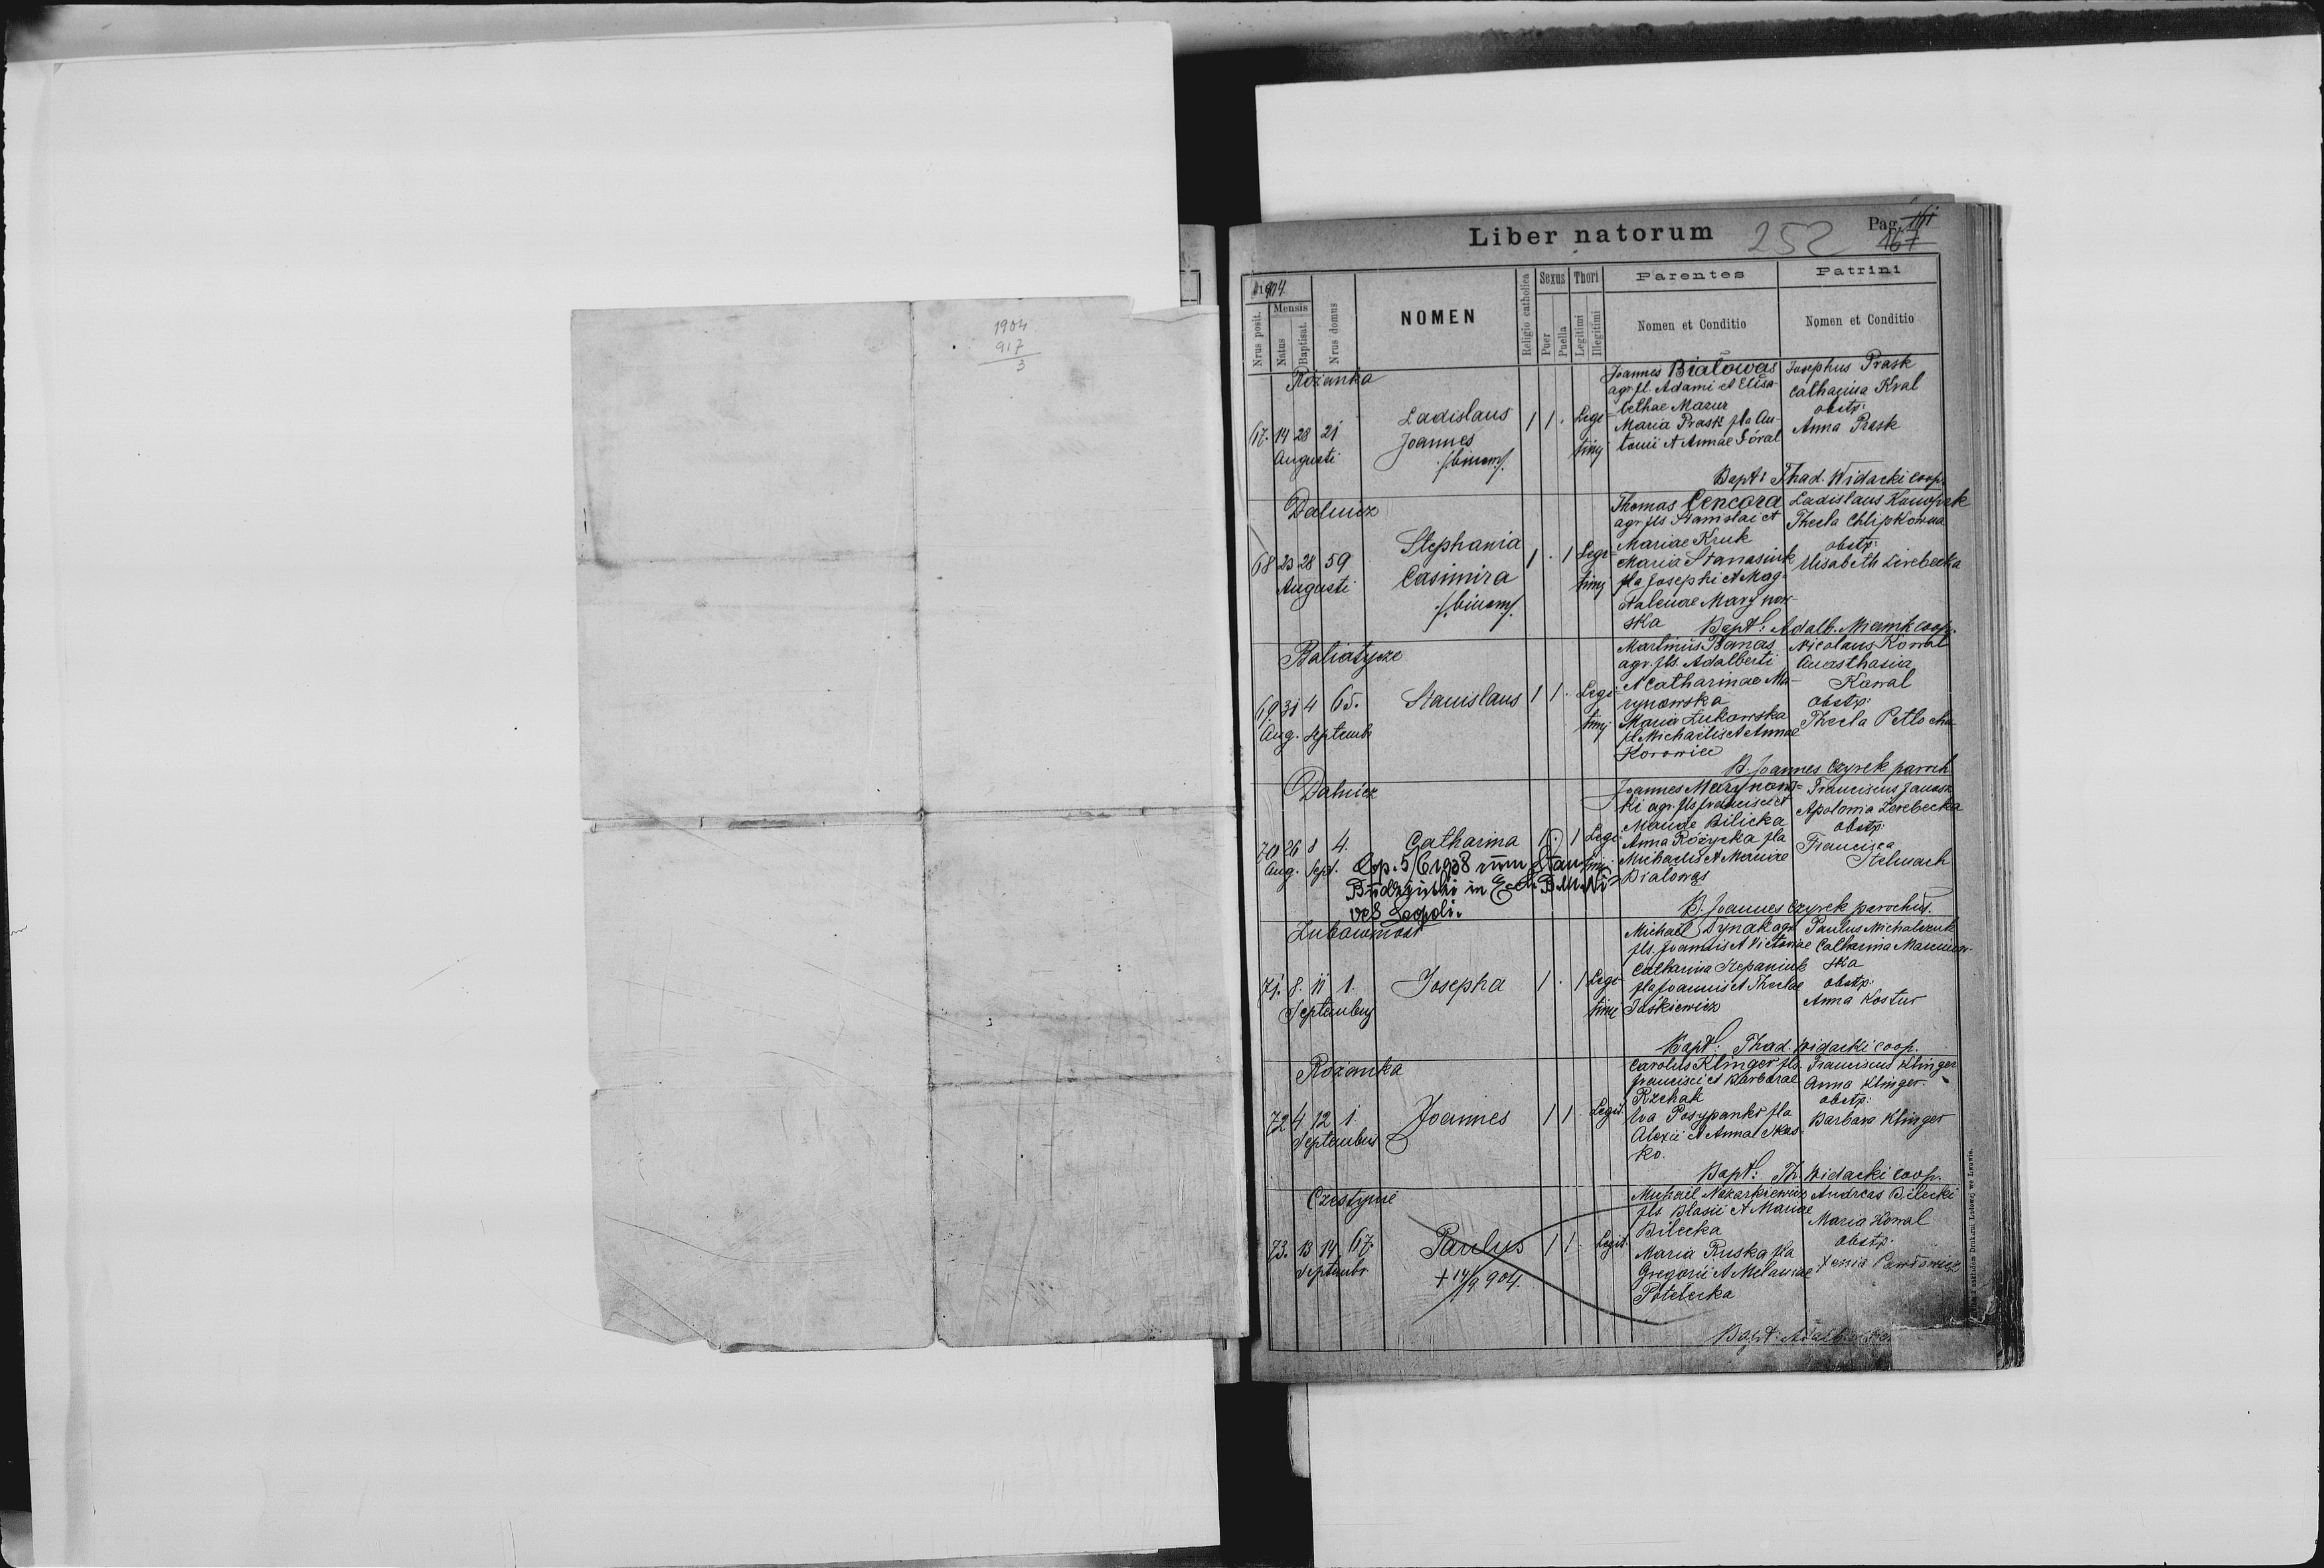 1904
917
3
Liber natorum
252
Pag. 161
167
1904
Nrus posit.
Mensis
Natus
Baptisat.
Nrus domus
NOMEN
Religio catholica
Sexus
Puer
Puella
Thori
Legitimi
Illegitimi
Parentes
Nomen et Conditio
Patrini
Nomen et Conditio
Rózanka
67. 14 28 21
Augusti
Ladislaus
Joannes
/binom/.
1 1 . Legi-
timj
Joannes Białowąs
agr. fl. Adami et Elisa-
bethae Mazur
Maria Prask fla An-
tonii et Annae Góral
Josephus Prask
Catharina Kral
obstp:
Anna Prask
Bapt: Thad. Widacki coop.
Dalnicz
68 23 28 59
Augusti
Stephania
Casimira
/binom/.
1 . 1 Legi-
timj
Thomas Cencora
agr. fls Stanislai et
Mariae Kruk
Maria Stanasiuk
fla Josephi et Mag-
dalenae Marynow-
ska
Ladislaus Konopak
Thecla Chlipkowna
obstp:
Elisabeth Zerebecka
Bapt: Adalb. Miernik coop.
Batiatycze
69. 31 4 65.
Aug. Septemb
Stanislaus
1 1 . Legi-
timj
Martinus Banas
agr. fls. Adalberti
et Catharinae Ma-
rynowska
Maria Żukowska
fl. Michaelis et Annae
Korowiec
Nicolaus Kowal
Anasthasia
Kowal
obstp:
Thecla Petlocha
B. Joannes Czyrek paroch.
Dalnicz
70 26 8 4.
Aug. Sept.
Catharina
1 . 1 Legi-
timj
Cop. 5/6 1938 cum Stan
Budzynski in Eccl. B.M.Ni-
ves Leopoli.
Joannes Marynows-
ki agr. fls Francisci et
Mariae Bilicka
Anna Różycka fla
Michaelis et Mariae
Bialowąs
Franciscus Janosz
Apolonia Zerebecka
obstp:
Francisca
Stelmach
B. Joannes Czyrek parochus.
Zubowmost
71. 8. 11 1.
Septembris
Josepha
1 . 1 Legi-
timj
Michael Dynak agr.
fls. Joannis et Victoriae
Catharina Stepaniuk
fla Joannis et Theclae
Jaśkiewicz
Paulus Michalczuk
Catharina Marynow-
ska
obstp:
Anna Kostur
Bapt: Thad. Widacki coop.
Rózanka
72 4 12 1.
Septembris
Joannes
1 1 . Legit.
Carolus Klinger fls.
Francisci et Barbarae
Rzehak
Eva Posypanko fla
Alexii et Annae Skas-
ko.
Franciscus Klinger
Anna Klinger.
obstp:
Barbara Klinger
Bapt: Th. Widacki coop.
Czestynie
73. 13 14 67.
Septembr
Paulus
+ 14/9 904.
1 1 . Legit.
Michail Nazarkiewicz
fls. Blasii et Mariae
Bilecka
Maria Ruska fla
Gregorii et Melaniae
Potelecka
Andreas Bilecki
Maria Kowal
obstp.
Xenia Pawłowicz
Bapt: Adalb.
nakładem Drukarni Ludowej we Lwowie.